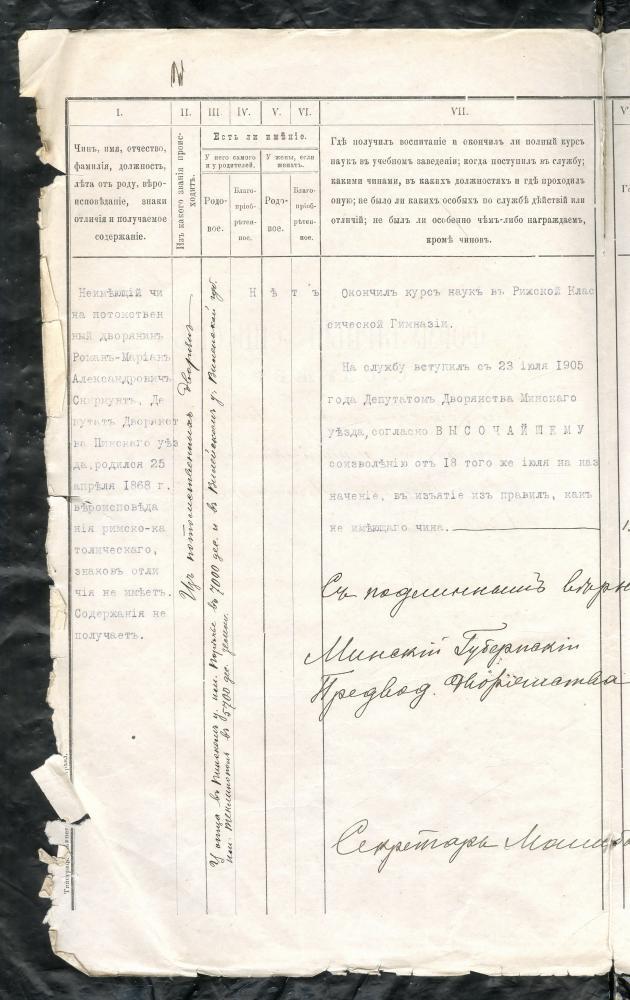 I.
Чинъ, имя, отчество,
фамилія, должность,
лѣта отъ роду, вѣро-
исповѣданіе, знаки
отличія и получаемое
содержаніе.
II.
Изъ какого званія проис-
ходитъ.
III.
IV.
V.
VI.
Есть ли имѣніе.
У него самого
и у родителей.
У жены, если
женатъ.
Родо-
вое.
Благо-
пріоб-
рѣтен-
ное.
Родо-
вое.
Благо-
пріоб-
рѣтен-
ное.
VII.
Гдѣ получилъ воспитаніе и окончилъ ли полный курсъ
наукъ въ учебномъ заведеніи; когда поступилъ въ службу;
какими чинами, въ какихъ должностяхъ и гдѣ проходилъ
оную; не было ли какихъ особыхъ по службѣ дѣйствій или
отличій; не былъ ли особенно чѣмъ-либо награждаемъ,
кромѣ чиновъ.
Неимѣющій чи
на потомствен
ный дворянинъ
Романъ-Маріанъ
Александровичъ
Скирмунтъ, Де
путатъ Дворянст
ва Пинскаго уѣз
да, родился 25
апрѣля 1868 г.
вѣроисповѣда
нія римско-ка
толическаго,
знаковъ отли
чія не имѣетъ.
Содержанія не
получаетъ.
Изъ потомственныхъ дворянъ
У отца въ Пинскомъ у. им. Порѣчье въ 7000 дес. и въ Вилейскомъ у. Виленской губ.
им. въ 5700 дес. земли.
Н ѣ т ъ
Окончилъ курсъ наукъ въ Рижской Клас
сической Гимназіи.
На службу вступилъ съ 23 іюля 1905
года Депутатомъ Дворянства Минскаго
уѣзда, согласно ВЫСОЧАЙШЕМУ
соизволѣнію отъ 18 того же іюля на наз
наченіе, въ изъятіе изъ правилъ, какъ
не имѣющаго чина.
Съ подлиннымъ вѣрн
Минскій Губернскій
Предвод. Дворянства
Секретарь